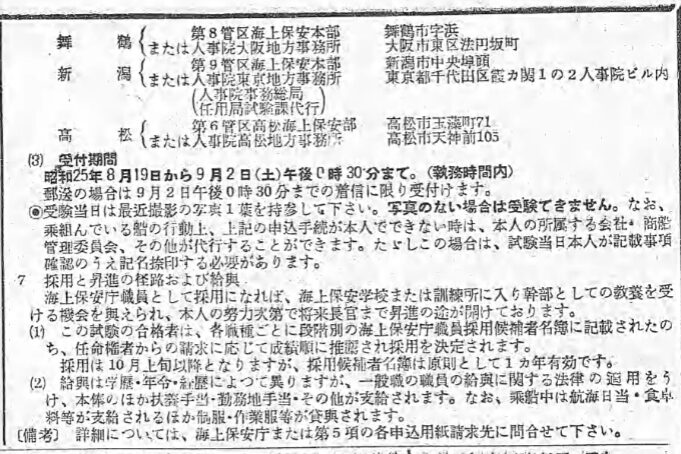 舞鶴 { 第8管区海上保安本部 舞鶴市字浜
または人事院大阪地方事務所 大阪市東区法円坂町
新潟 { 第9管区海上保安本部 新潟市中央埠頭
または人事院東京地方事務所 東京都千代田区霞カ関1の2人事院ビル内
(人事院事務総局
任用局試験課代行)
高松 { 第6管区高松海上保安部 高松市玉藻町71
または人事院高松地方事務所 高松市天神前105
(3) 受付期間
昭和25年8月19日から9月2日(土)午後0時30分まで。(執務時間内)
郵送の場合は9月2日午後0時30分までの着信に限り受付けます。
◉受験当日は最近撮影の写真1葉を持参して下さい。写真のない場合は受験できません。なお、
乗組んでいる船の行動上、上記の申込手続が本人でできない時は、本人の所属する会社・商船
管理委員会、その他が代行することができます。たゞしこの場合は、試験当日本人が記載事項
確認のうえ記名捺印する必要があります。
7 採用と昇進の経路および給與
海上保安庁職員として採用になれば、海上保安学校または訓練所に入り幹部としての教養を受
ける機会を與えられ、本人の努力次第で将来長官まで昇進の途が開けております。
(1) この試験の合格者は、各職種ごとに段階別の海上保安庁職員採用候補者名簿に記載されたの
ち、任命権者からの請求に応じて成績順に推薦され採用を決定されます。
採用は10月上旬以降となりますが、採用候補者名簿は原則として1カ年有効です。
(2) 給與は学歴・年令・経歴によつて異りますが、一般職の職員の給與に関する法律の適用をう
け、本俸のほか扶養手当・勤務地手当・その他が支給されます。なお、乗船中は航海日当・食卓
料等が支給されるほか制服・作業服等が貸與されます。
〔備考〕 詳細については、海上保安庁または第5項の各申込用紙請求先に問合せて下さい。